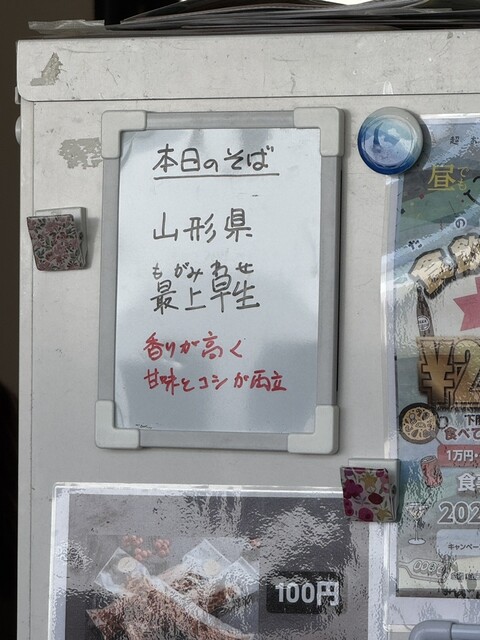 本日のそば
山形県
もがみわせ
最上早生
香りが高く
甘味とコシが両立
100円
昼でも
の
¥2
食べて
1万円
食
202
キャンペーン